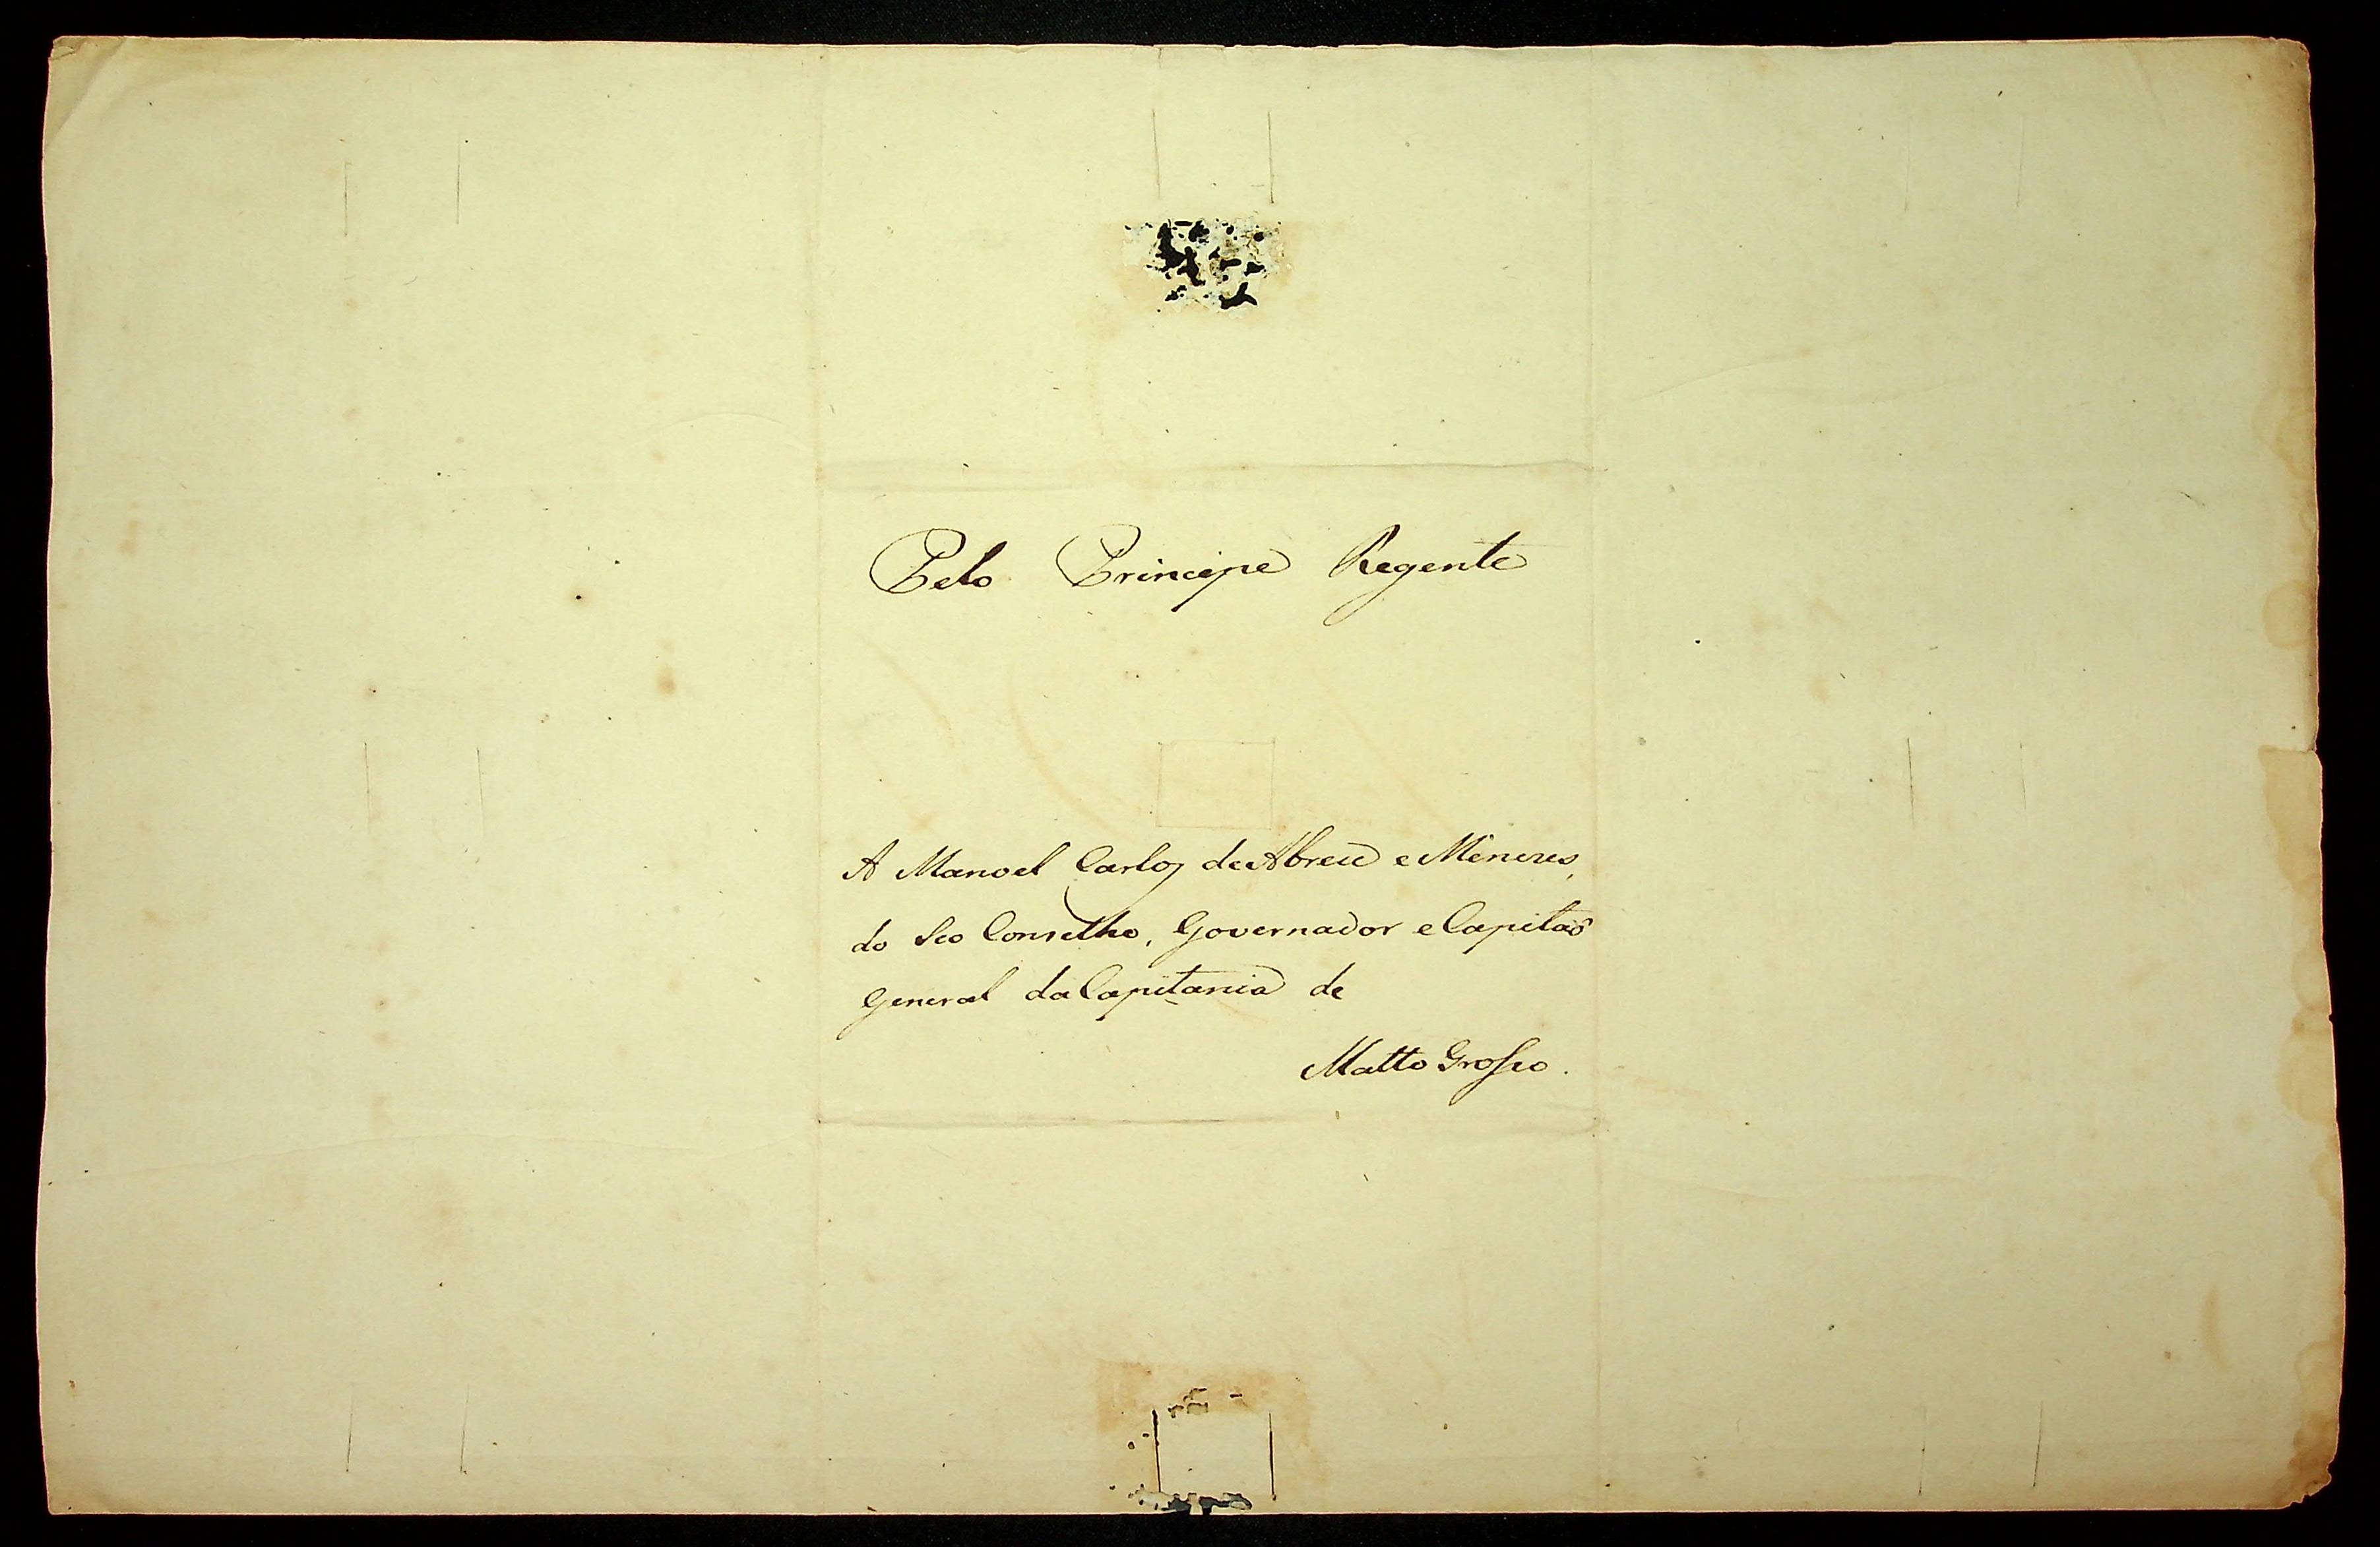 Pelo Principe Regente
A Manoel Carlos de Abreu e Menezes,
do Seo Conselho, Governador e Capitaõ
General da Capitania de
Matto Grosso.